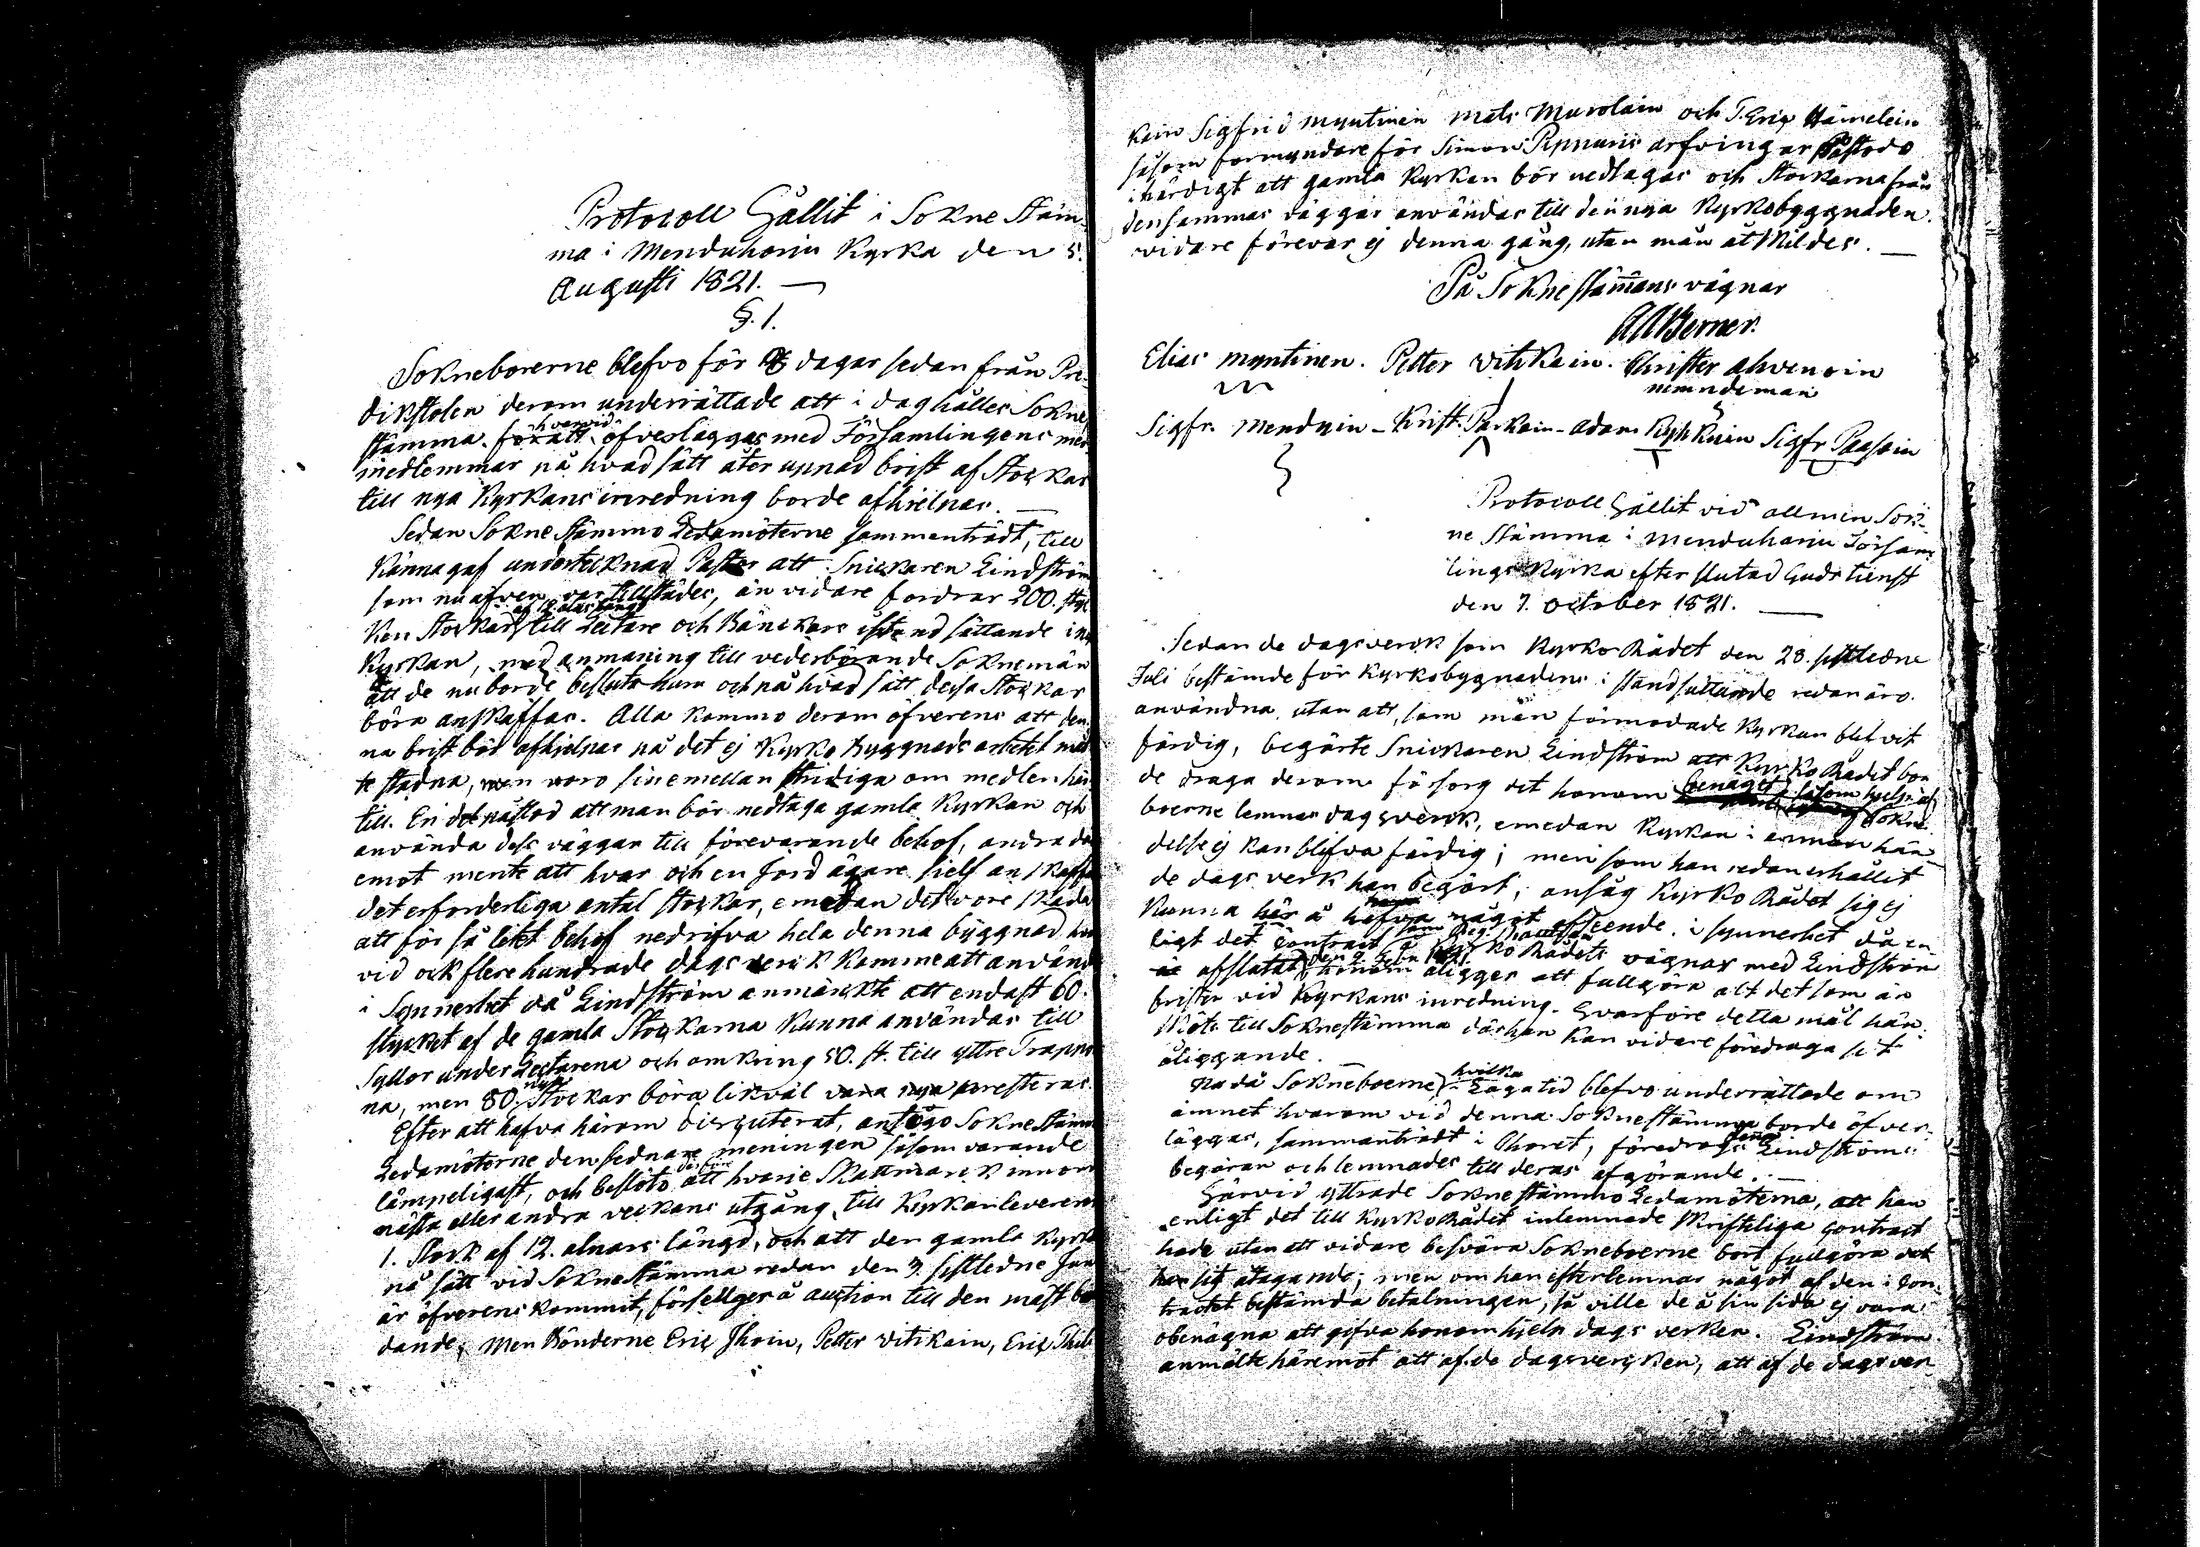 Protocoll hållit i Sokne stäm-
ma i Menduharju Kyrka den 5.
Augusti 1821. —
§. 1.
Sokneboerne blefvo för 8 dagar sedan från Pre-
dikstolen derom underrättade att i dag hålles Sokne
stämma. för att hvarvid öfverlägges med Församlingens med
medlemmar på hvad sätt åter uppnad brist af Stockar
till nya Kyrkans inredning borde afhielpas. —
Sedan Sokne stämmo Ledamöterne sammanträdt, till
känna gaf undertecknad Pastor att Snickaren Lindström
som nu äfven var tillstädes, än vidare fordrar 200. styc
ken Stockar af 12 alnars längd till Lectare och Bänckars iståndsättande i nya
Kyrkan, med anmaning till vederbörande Soknemän
att de nu borde besluta hum och på hvad sätt dessa Stockar
böra anskaffas. Alla kommo derom öfverens att den
na brist bör afhielpas på det ej Kyrko Byggnads arbetet måt
te stadna, men woro sinemellan stridiga om medlen här
till. En del påstod att man bör nedtaga gamla Kyrkan och
använda dess väggar till förevarande behof, andra der
emot mente att hvar och en Jord ägare sielf anskaffa
det erforderliga antal stockar, emedan det vore skada
att för så litet behof nedrifva hela denna byggnad hvar
vid ock flere hundrade dagsverck komme att använd
i Synnerhet då Lindström anmärkte att endast 60.
stycket af de gamla Stockarna kunna användas till
Syllor under Lectarena och omkring 50. st. till yttre Trappor
na, men 80. nya Stockar böra likväl vara nya presteras.
Efter att hafva härom disputerat, antogo Sokne stämmo
Ledamöterne den sednare meningen såsom varande
lämpeligast, och beslöto derföre att hvarje Skattmarck innom
nästa eller andra veckans utgång till Kyrkan levererar
1. stock af 12. alnars längd, och att den gamla Kyrka
på sätt vid Sokne stämma redan den 3. sistledne Jun
är öfverens kommit, försellges å auction till den mäst bju
dande; Men Bönderne Eric Ihoin, Petter Vitikain, Eric Thit
kain Sigfrid Myntinen Mats Murolain och T. Eric Hämelein
såsom formyndare för Simon Pippuris arfvingar Påstodo
ihärdigt att gamla Kyrkan bör nedtagas och Stockarna från
densammas väggar användas till den nya Kyrkobyggnaden.
vidare förevar ej denna gång, utan man åtskildes. —
På Sokne stämans vägnar
AABerner.
Elias Myntinen. Petter Vitikain. Christer Ahvenoin
nemndeman
Sigfr. Menduin - Krist. Parkain - Adam Kyhkyin Sigfr Paasoin
Protocoll hållit vid allmen Sok-
ne stämma i Menduharju Försam
lings Kyrka efter slutad Guds tienst
den 7. october 1821. —
Sedan de dagsverck som Kyrko Rådet den 28. sistledne
Juli bestämde för Kyrkobygnadens i stånd sättande redan äro
användna, utan att, som män förmodade Kyrkan blifvit
färdig, begärte Snickaren Lindström att Kyrko Rådet bor
de draga derom försorg att honom benäget såsom hjelp af Sokne
boerne lemnas dagsverck, emedan Kyrkan i annan hän
delse ej kan blifva färdig; men som han redan erhållit
de dags verk han begärt, ansåg Kyrko Rådet sig ej
kunna här å hafva något afseende. i synnerhet då en
ligt det Contract som å Kyrko Rådets vägnar med Lindström
är afslutat, honom åligger att fullgöra alt det som än
brister vid Kyrkans inredning. Hvarföre detta mål hän
sköts till Soknestämma där han kan vidare föredraga sit
åliggande. —
På då Sokneboerne hvilka Lagatid blefvo underrättade om
ämnet hvarom vid denna Sokne stämma borde öfver
läggas, sammanträdt i Choret, föredrogs denna Lindströms
begäran och lemnades till deras afgörande. —
Härvid yttrade Sokne stämmo Ledamöterna, att han
enligt det till Kyrko Rådet inlemnade skriftliga Contract
hade utan att vidare besvära Sokneboerne bort fullgöra det
han sig åtagande; men om han efterlemnar något af den i Con-
tractet bestämda betalningen, så ville de å sin sida ej vara
obenägna att gifva honom hjelp dags verken. Lindström
anmälte häremot att af de dagsvercken, att af de dagsver